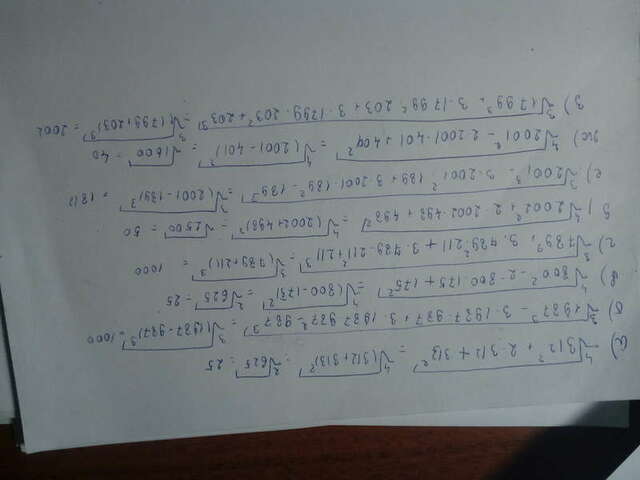 а) ⁴√312² + 2·312 + 313² = ⁴√(312+313)² = ²√625 = 25
б) ³√1927³ - 3·1927·927 + 3·1927·927² - 927³ = ³√(1927-927)³ = 1000
в) ⁴√800² - 2·800·175 + 175² = ⁴√(800-175)² = ²√625 = 25
г) ³√789³ + 3·789²·211 + 3·789·211² + 211³ = ³√(789+211)³ = 1000
д) ⁴√2002² + 2·2002·498 + 498² = ⁴√(2002+498)² = √2500 = 50
е) ³√2001³ - 3·2001²·189 + 3·2001·189² - 189³ = ³√(2001-189)³ = 1812
ж) ⁴√2001² - 2·2001·401 + 401² = ⁴√(2001-401)² = √1600 = 40
з) ³√1799³ + 3·1799²·203 + 3·1799·203² + 203³ = ³√(1799+203)³ = 2002